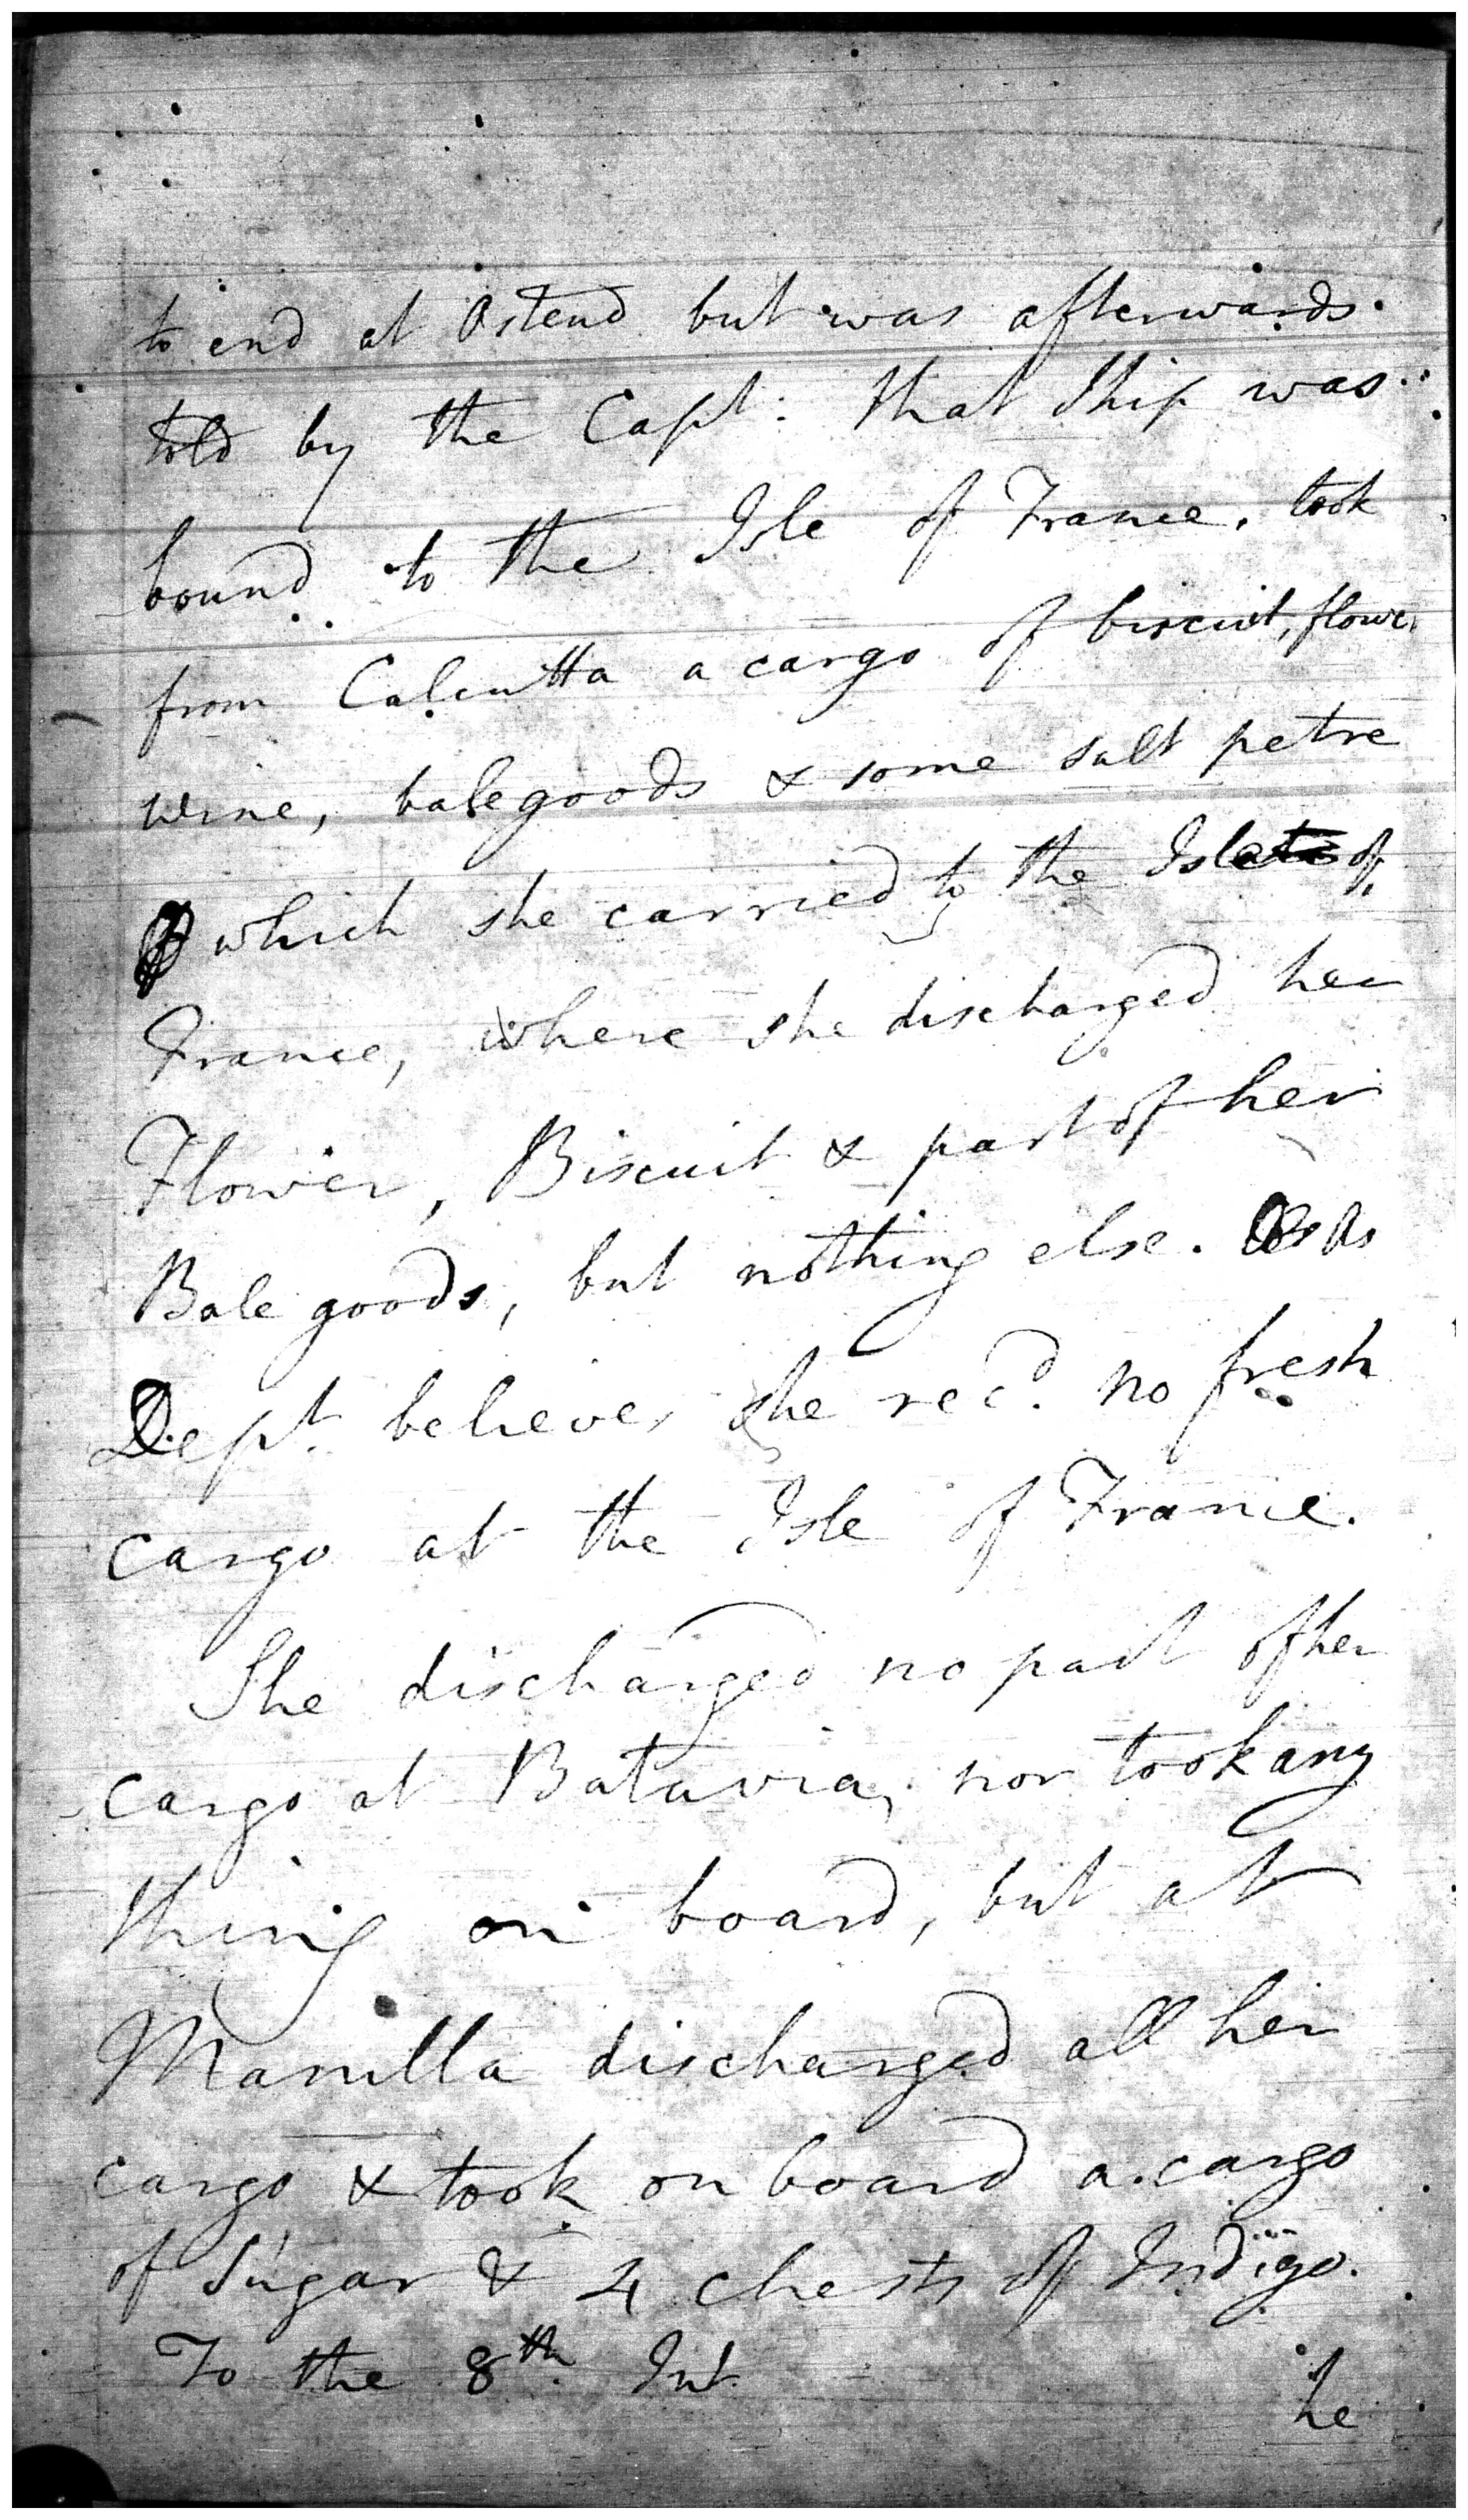 to end at Ostend but was afterwards
told by the Capt: that Ship was
bound to the Isle of France, took
from Calcutta a cargo of biscuit, flower
wine, balegoods & some salt petre
which she carried to the Isle of
France, where she discharged her
Flower, Biscuit & part of her
Bale goods, but nothing else. As
Dept. believes she rec'd. no fresh
cargo at the Isle of France.
She discharged no part of her
cargo at Batavia, nor took any
thing on board, but at
Manilla discharged all her
cargo & took on board a cargo
of Sugar & 4 chests of Indigo.
To the 8th Int.
he